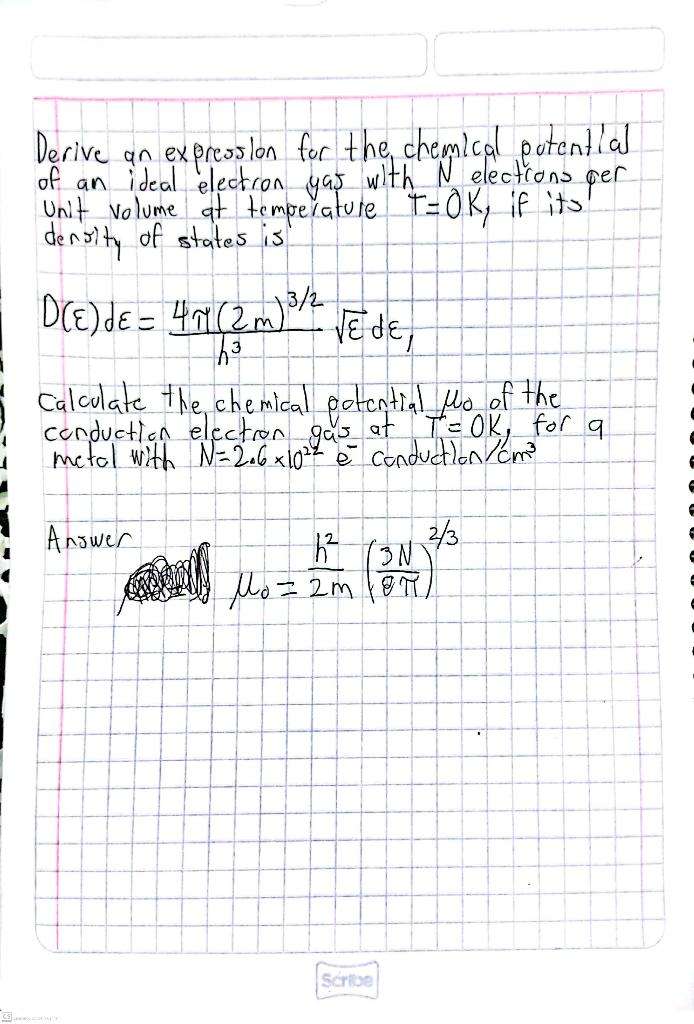 Derive an expression for the chemical potential
of an ideal electron gas with N electrons per
Unit volume at temperature T=0K, if its
density of states is
D(ε)dε = 4π(2m)^3/2 / h³ √ε dε,
Calculate the chemical potential μ₀ of the
conduction electron gas at T=0K, for a
metal with N=2.6 x10²² e⁻ conduction/cm³
Answer
μ₀ = h²/2m (3N/8π)^2/3
Scribe
CS